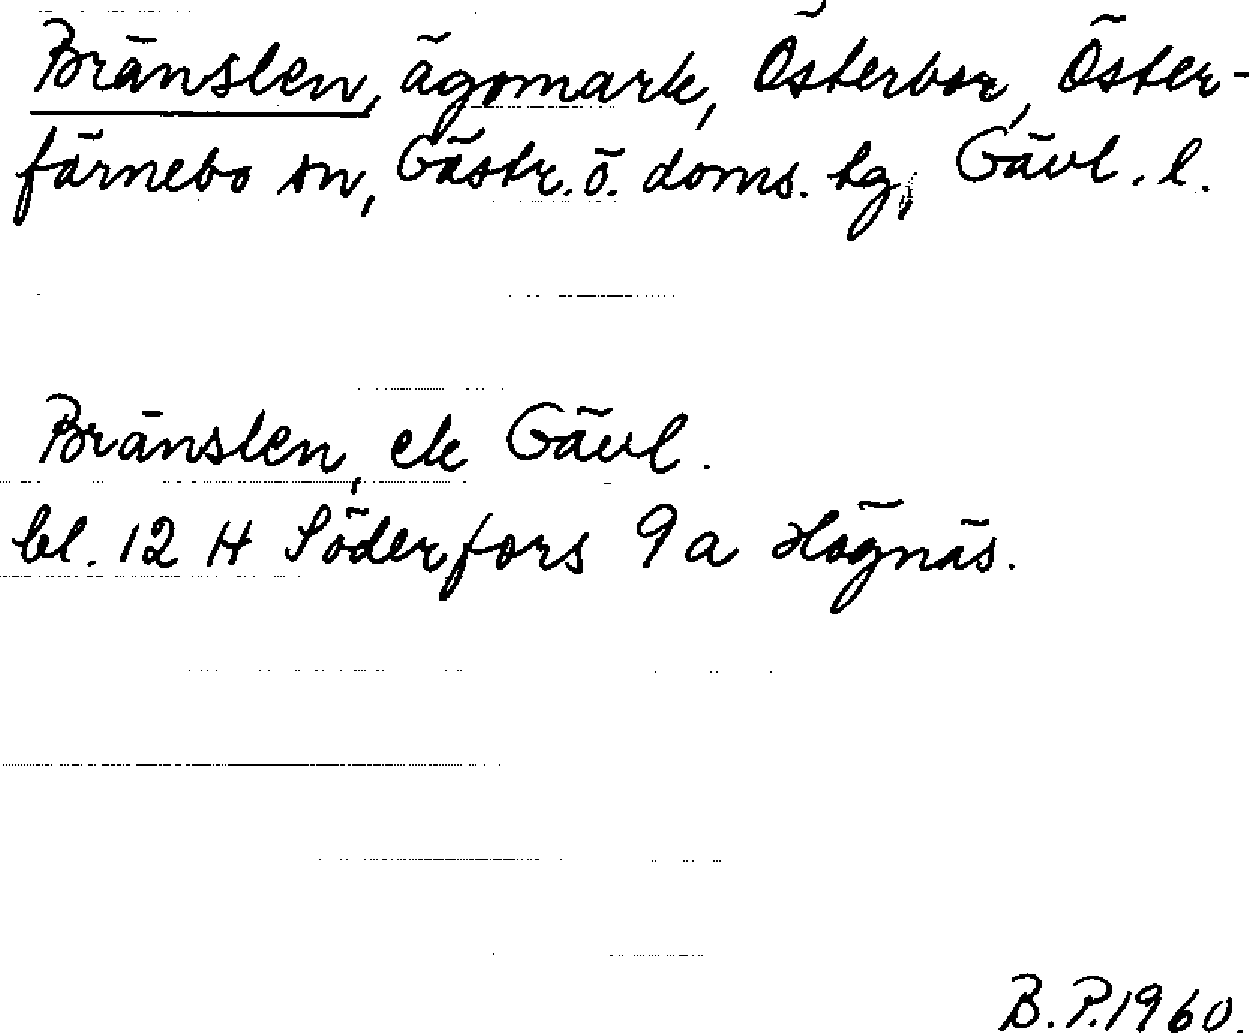 Bränslen, ägomark, Österbor, Öster-
färnebo sn, Gästr. ö. doms. tg, Gävl. l.
Bränslen, ek Gävl.
bl. 12 H Söderfors 9 a Högnäs.
B. P. 1960.